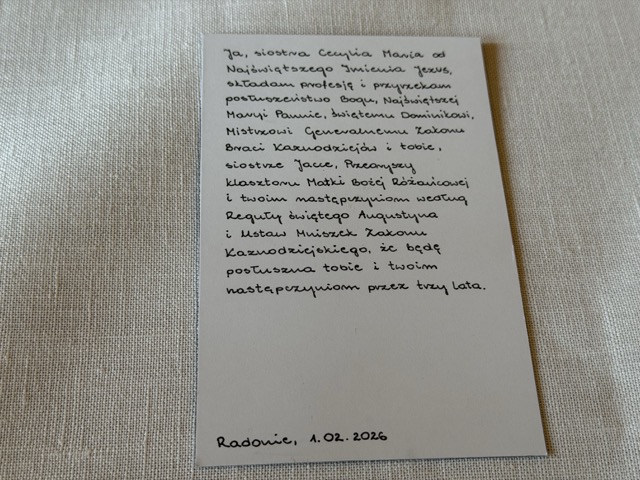 Ja, siostra Cecylia Maria od
Najświętszego Imienia Jezus,
składam profesję i przyrzekam
posłuszeństwo Bogu, Najświętszej
Maryi Pannie, świętemu Dominikowi,
Mistrzowi Generalnemu Zakonu
Braci Kaznodziejów i tobie,
siostrze Jacce, Przeoryszy
klasztoru Matki Bożej Różańcowej
i twoim następczyniom według
Reguły świętego Augustyna
i Ustaw Mniszek Zakonu
Kaznodziejskiego, że będę
posłuszna tobie i twoim
następczyniom przez trzy lata.
Radonie, 1.02.2026